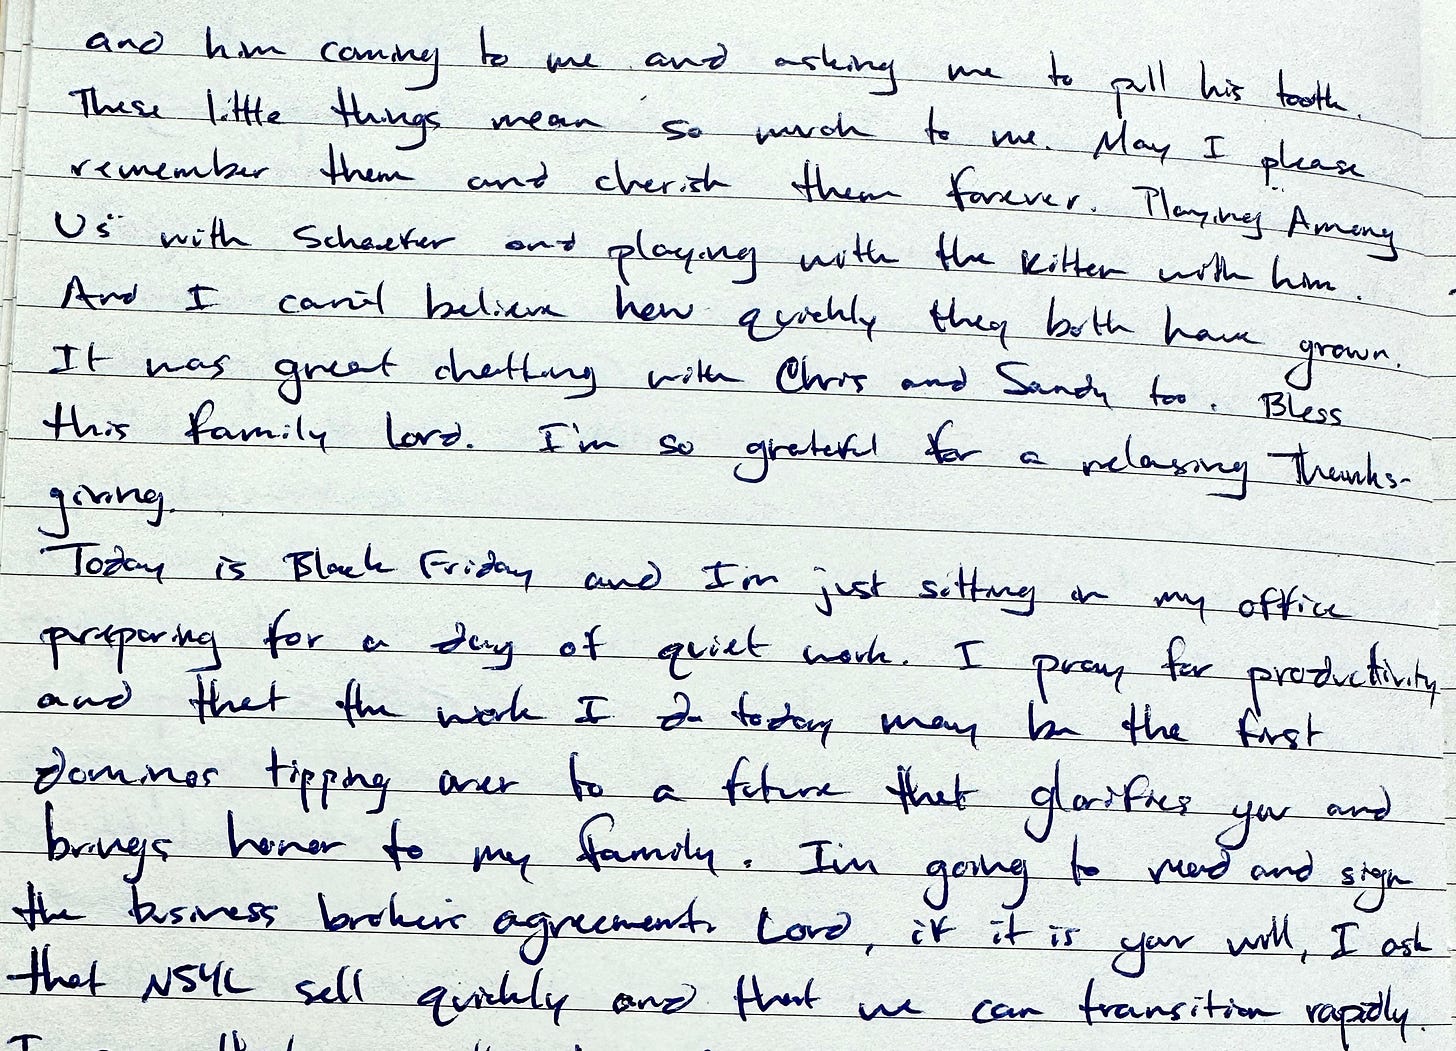 and him coming to me and asking me to pull his tooth.
These little things mean so much to me. May I please
remember them and cherish them forever. Playing "Among
Us" with Schaefer and playing with the kitten with him.
And I can't believe how quickly they both have grown.
It was great chatting with Chris and Sandy too. Bless
this family Lord. I'm so grateful for a relaxing Thanks-
giving.
Today is Black Friday and I'm just sitting in my office
preparing for a day of quiet work. I pray for productivity
and that the work I do today may be the first
dominos tipping over to a future that glorifies you and
brings honor to my family. I'm going to read and sign
the business brokers agreement. Lord, if it is your will, I ask
that NSYL sell quickly and that we can transition rapidly.